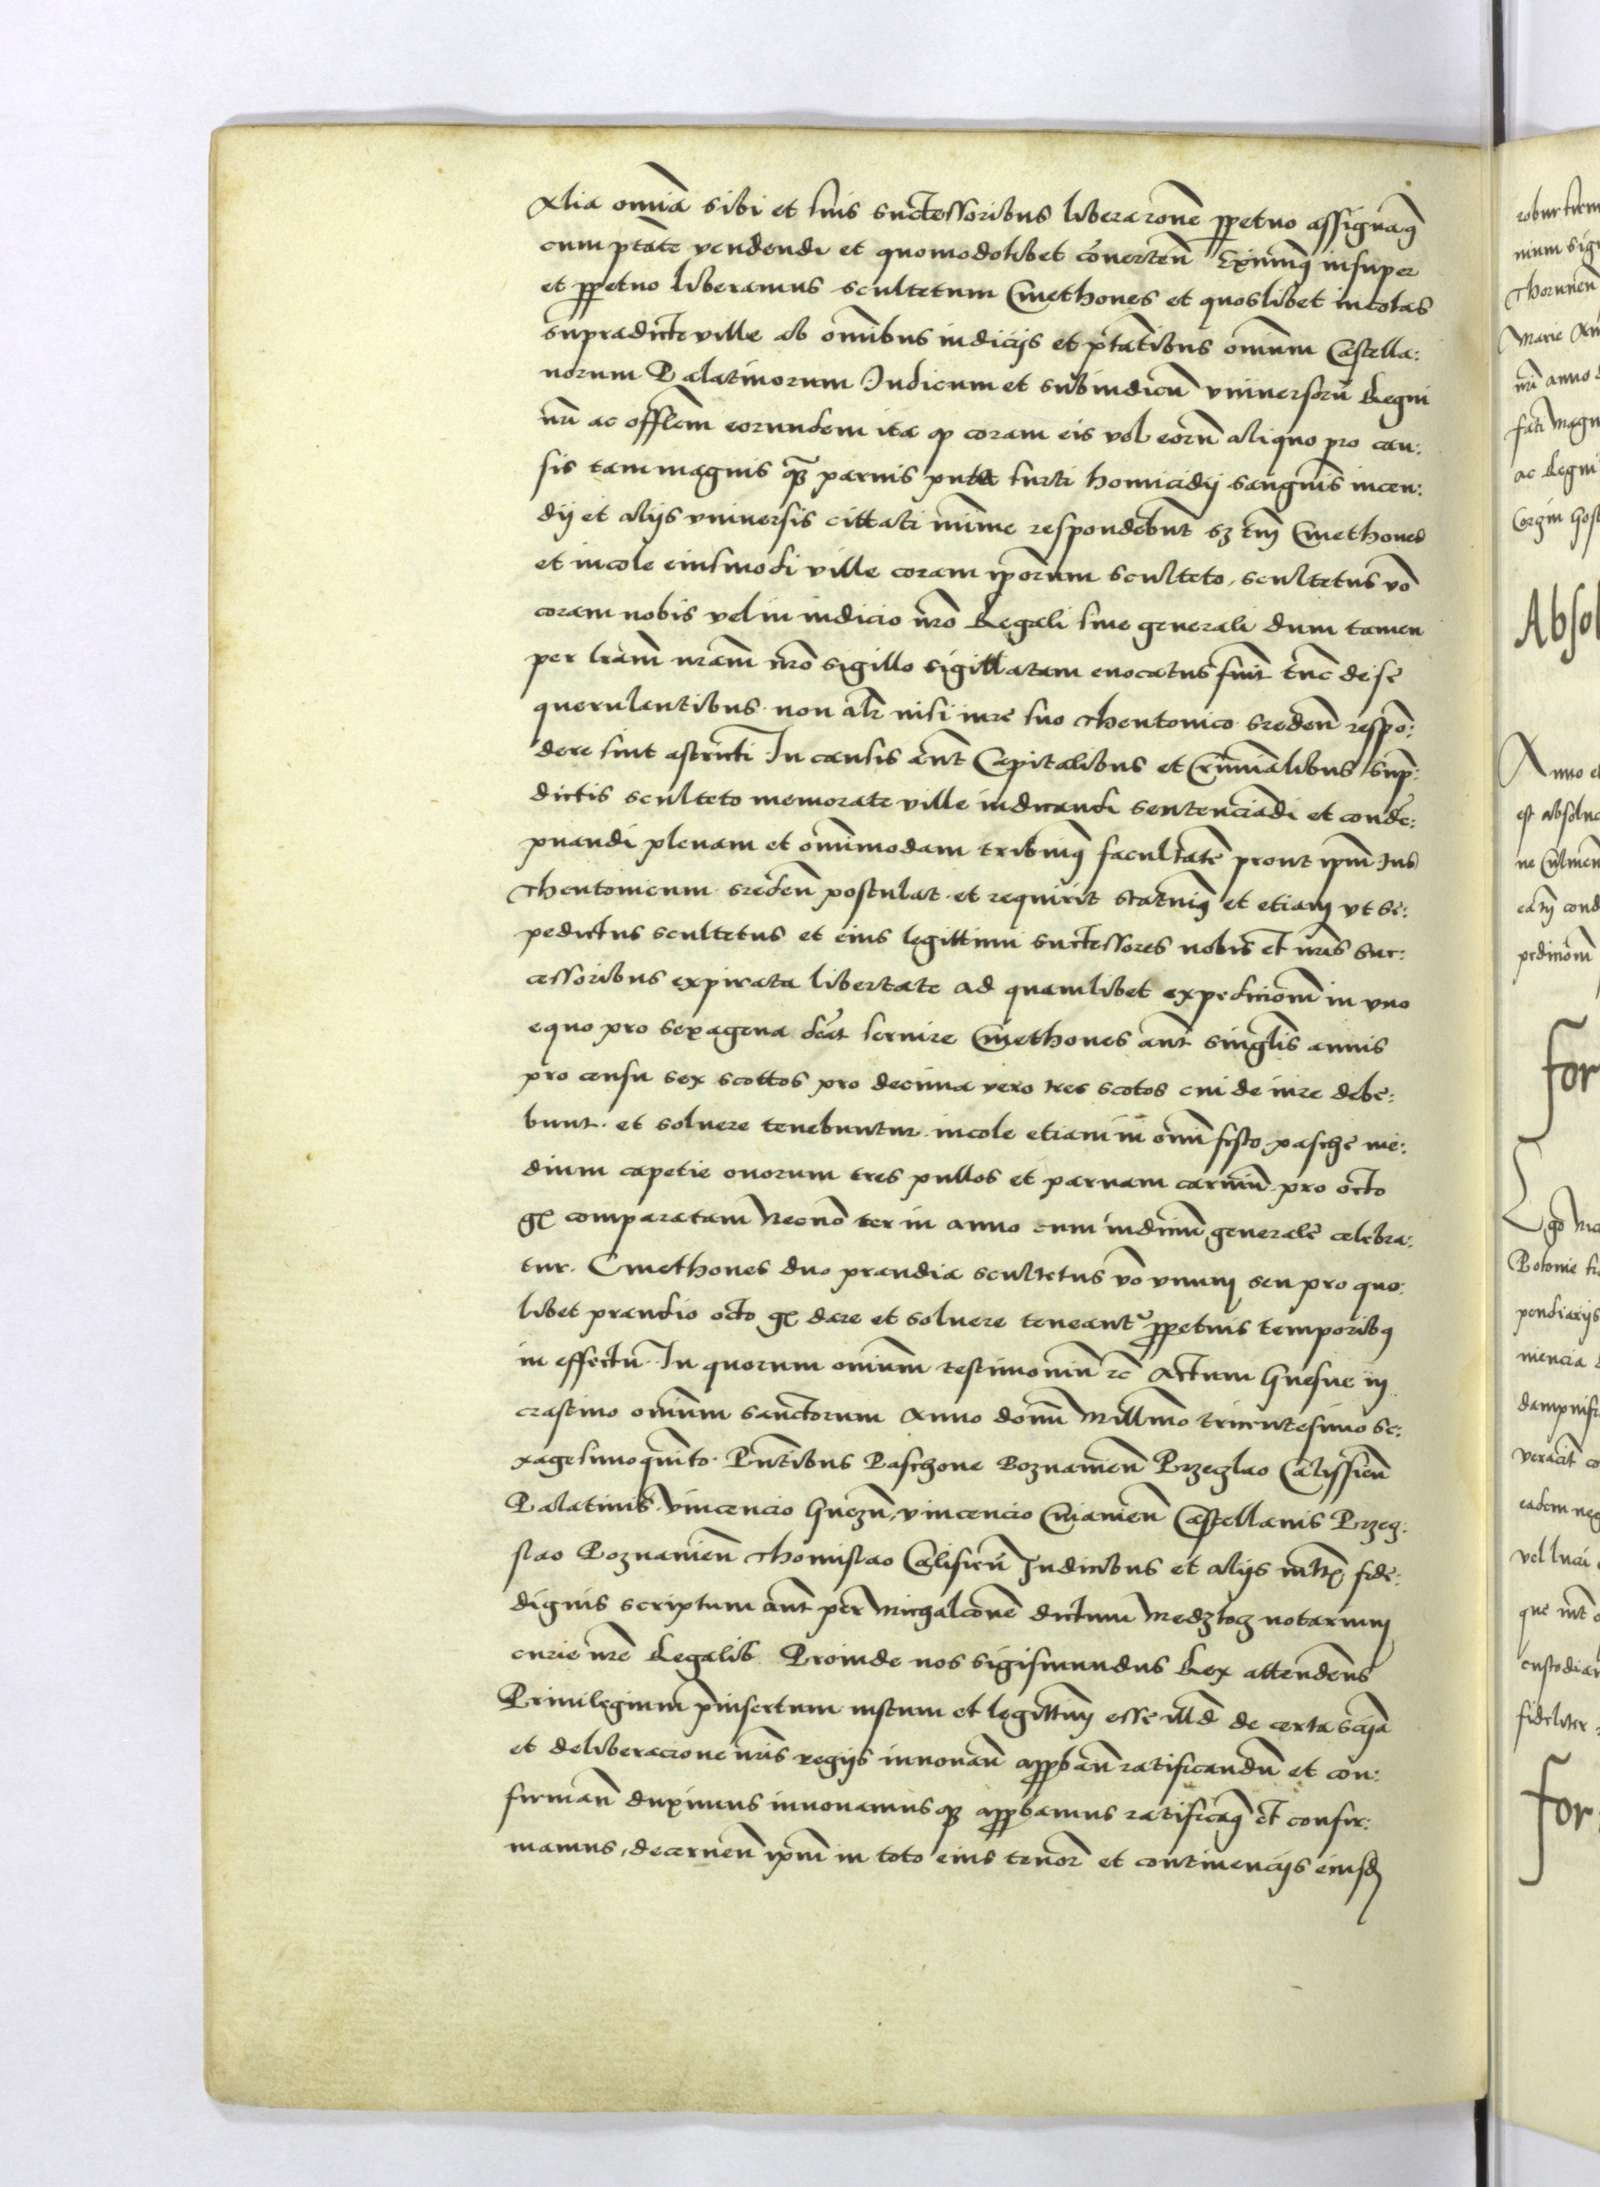 Alia omnia sibi et suis successoribus libera rone perpetuo assignamus
cum ptate vendendi et quomodolibet convertendi Eximimus insuper
et perpetuo liberamus scultetum Cmethones et quoslibet incolas
supradicte ville ab omnibus iudicijs et ptatibus omnium Castella:
norum Palatinorum Iudicum et subiudicu universoru Regni
nri ac offlium eorundem ita q coram eis vel eoru aliquo pro cau:
sis tam magnis q parvis puta furti homicidij sanguinis incen:
dij et alijs universis cittati minime respondebunt sz tm Cmethones
et incole eiusmodi ville coram iporum sculteto, scultetus vo
coram nobis vel in iudicio nro Regali sive generali dum tamen
per lram nram nro sigillo sigillatam evocatus fuit tuc de se
querulantibus non alr nisi iure suo Theutonico sreden respo:
dere sint astricti In causis aut Capitalibus et Criminalibus sup:
dictis sculteto memorate ville iudicandi sentenciadi et conde:
pnandi plenam et omnimodam tribuimus facultate prout ipm Ius
Theutonicum sreden postulat et requirit statuimus et etiam ut se:
pedictus scultetus et eius legittimi successores nobis et nris suc:
cessoribus expirata libertate ad quamlibet expedicionem in uno
equo pro sexagena deat servire Cmethones aut singlis annis
pro censu sex scottos pro decima vero tres scotos cui de iure debe:
bunt et solvere tenebuntur incole etiam in omi festo pasche me:
dium capetie ovorum tres pullos et parvam carniu pro octo
gr comparatam Necno ter in anno cum iudiciu generale celebra:
tur. Cmethones duo prandia scultetus vo unum seu pro quo:
libet prandio octo gr dare et solvere teneantur perpetuis temporibus
in effectu. In quorum omnium testimoniu rc Actum Gnesne in
crastino omnium sanctorum Anno domi Millmo tricentesimo se:
xagesimoquinto. Pntibus Paschone Poznanien Przeczlao Calissien
Palatinis Vincencio Gnezn, Vincencio Cmanien Castellanis Przecz:
slao Poznanien Thomislao Calisien Iudicibus et alijs mltis fide:
dignis scriptum aut per Michalcone dictum Medzlocz notarium
curie nre Regalis. Proinde nos Sigismundus Rex attendens
Privilegium pinsertum iustum et legittimu esse illd de certa scia
et deliberacione nris regijs innovan approban ratificandu et con:
firman duximus innovamus q approbamus ratificamus et confir:
mamus, decernen ipm in toto eius tenor et continencijs eiusd